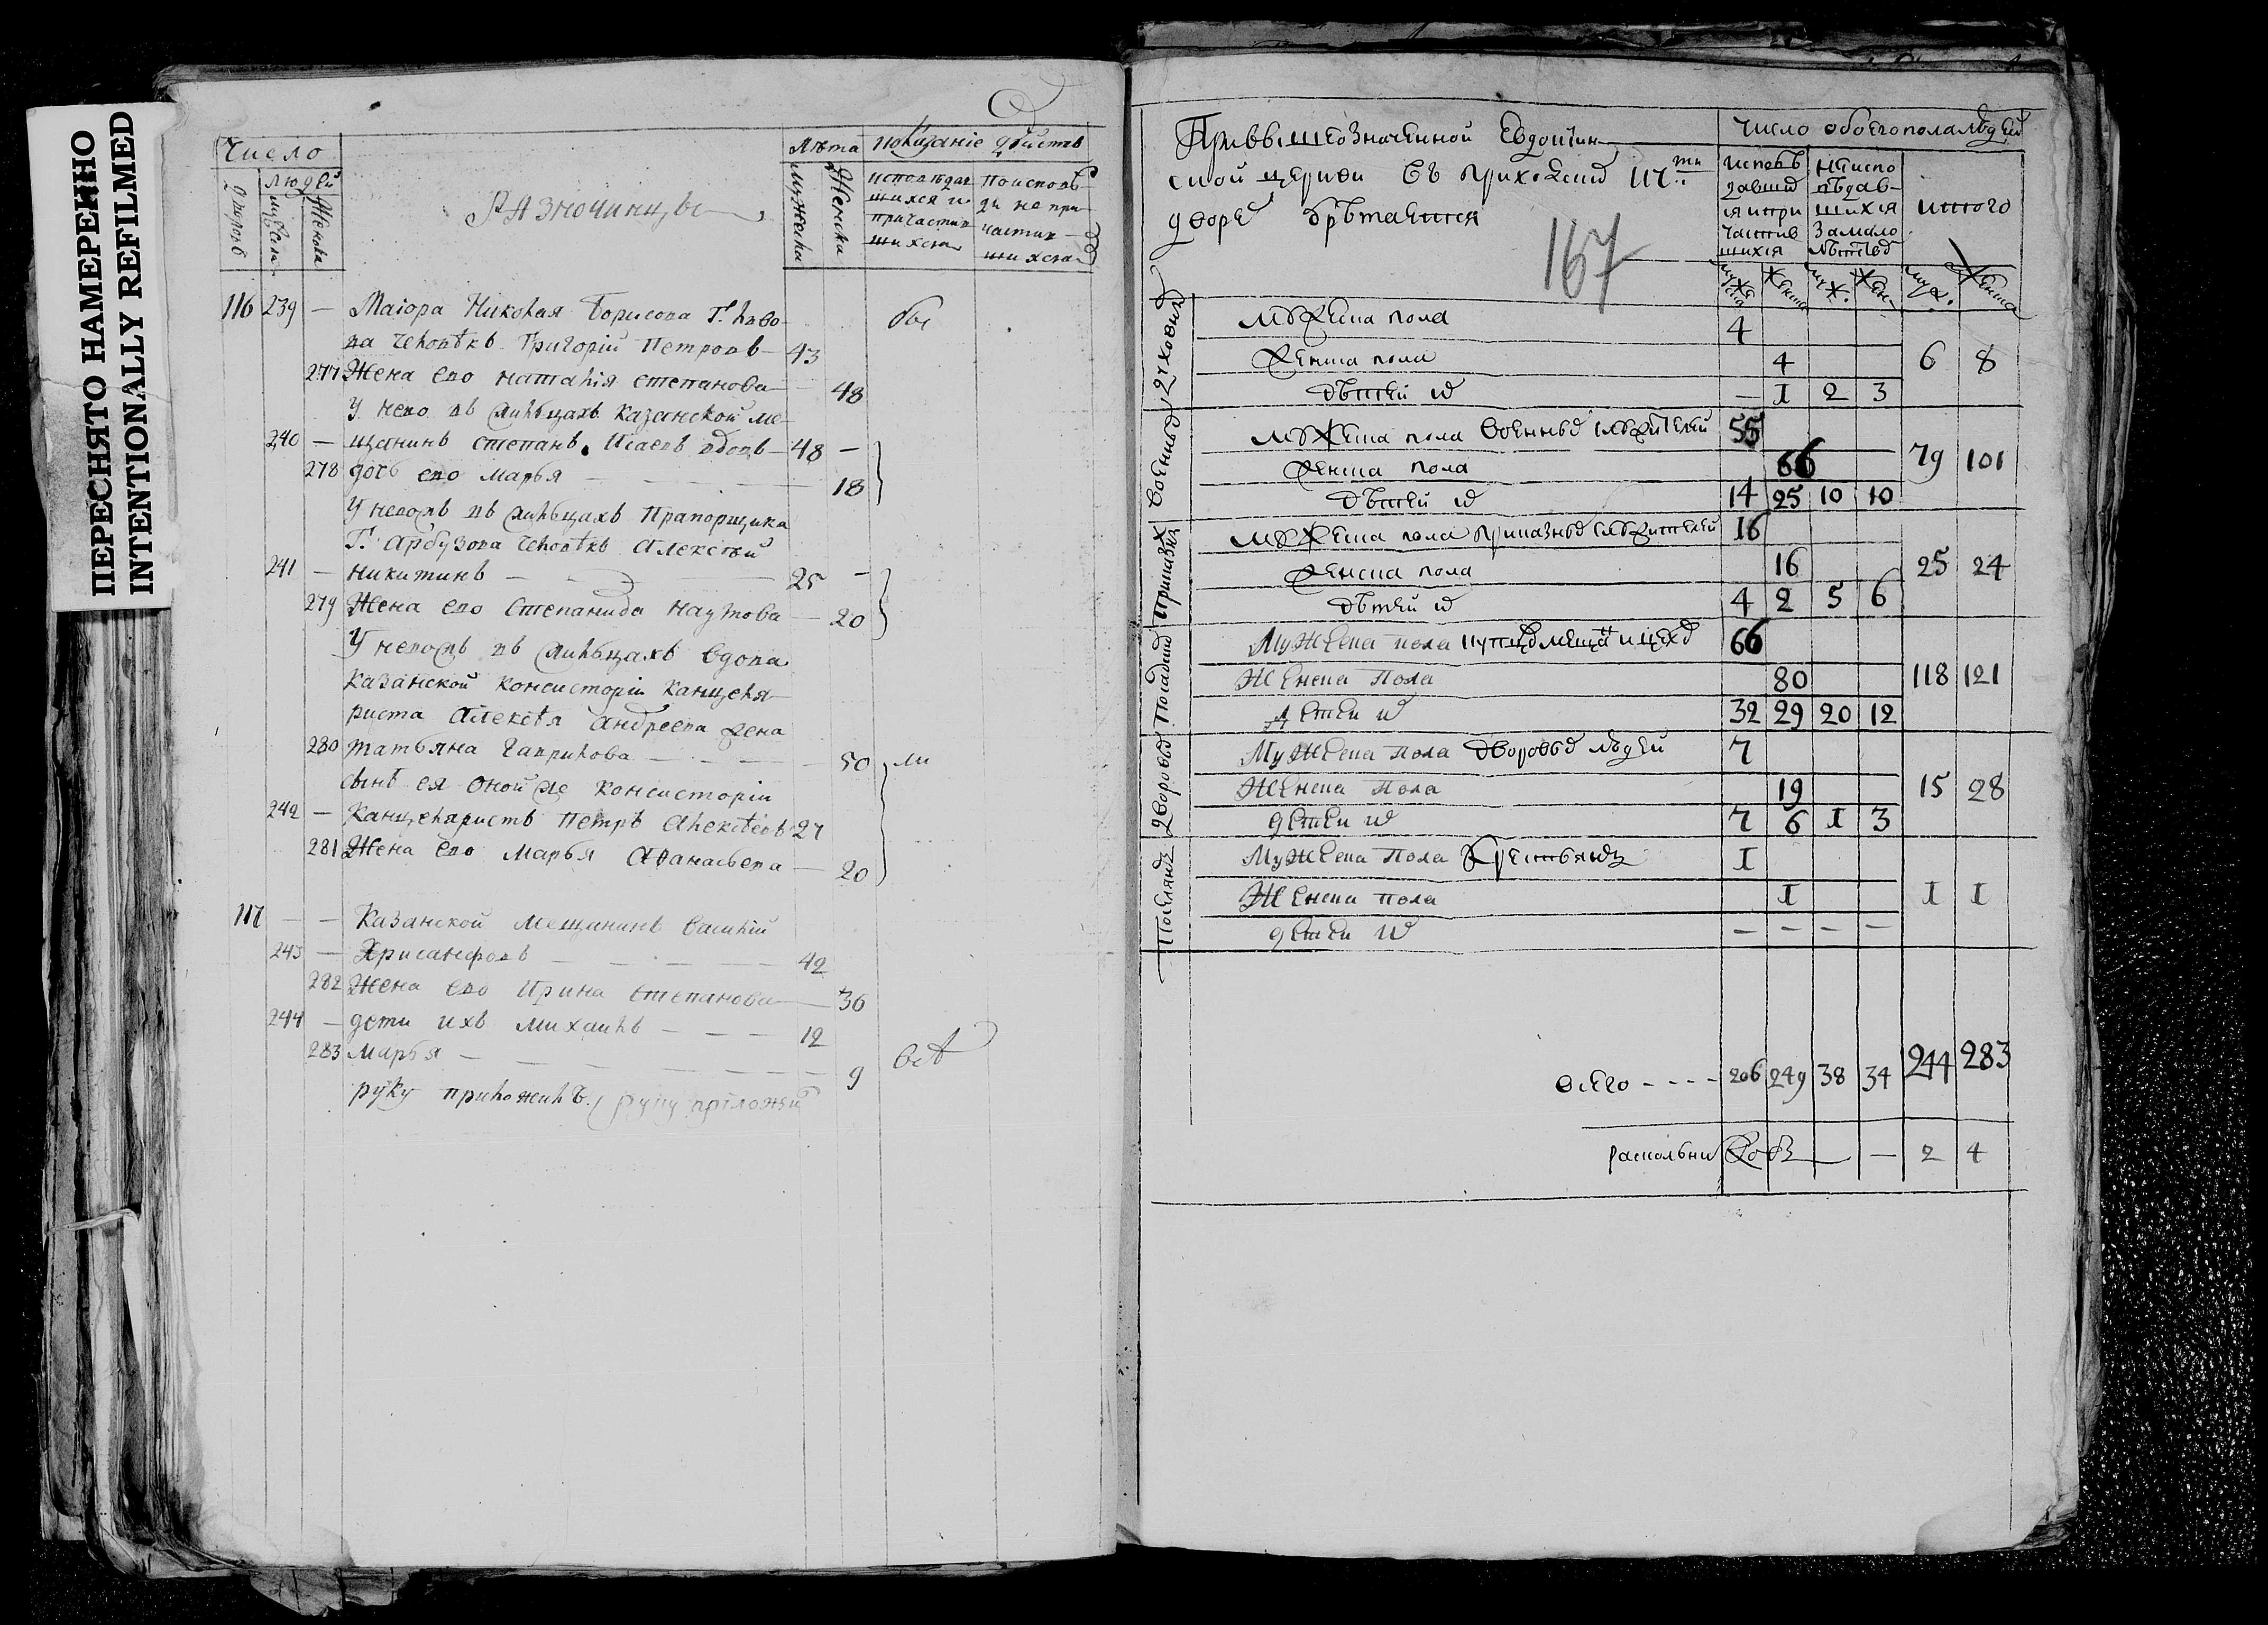 ПЕРЕСНЯТО НАМЕРЕННО
INTENTIONALLY REFILMED
Число
людей
дворовъ
мужеска
Женска
Разночинцы
Лѣта
мужеска
Женска
показаніе действ
исповѣдав
шихся и
причастив
шихся
По исповѣ
ди не при
частив
шихся
116 239 — Маіора Николая Борисова Г. Льво
ва человѣкъ Григорій Петровъ — 43
277 Жена ево наталія степанова — 48
У нево въ жильцахъ казанской ме
240 — щанинъ степанъ Исаевъ вдовъ — 48 —
278 дочь ево марья — 18
У негожъ въ жильцахъ Прапорщика
Г. Арбузова человѣкъ Алексѣй
241 — никитинъ — 25 —
279 Жена ево степанида наумова — 20
У негожъ въ жильцахъ вдова
казанской консисторіи канцеля
риста Алексѣя Андреева жена
280 татьяна Гаврилова — 50
сынъ ея оной же консисторіи
242 — Канцеляристъ Петръ Алексѣевъ 27
281 Жена ево марья Аѳанасьева — 20
117 — — Казанской мещанинъ василій
243 — Хрисанфовъ — 42
282 Жена ево Ирина степанова — 36
244 — дети ихъ михаилъ — 12
283 марья — 9
всѣ
руку приложилъ
руку приложилъ
При вышеозначенной Евдокіин
ской церкви въ приходскихъ 117ти
дворехъ обрѣтается
167
Число обоего пола людей
исповѣ
давших
ся и при
частив
шихся
неиспо
вѣдав-
шихся
за мало
лѣтствъ
итого
мужеска
Женска
муж.
Жен.
муж.
Женска
духовных
мужеска пола 4
женска пола 4 6 8
дѣтей их — 1 2 3
военных
мужеска пола военных служителей 55
женска пола 66 79 101
дѣтей их 14 25 10 10
приказных
мужеска пола приказных служителей 16
женска пола 16 25 24
дѣтей их 4 2 5 6
посадских
Мужеска пола купцов мещан и цехов 66
Женска Пола 80 118 121
детей их 32 29 20 12
дворовых
Мужеска Пола дворовых людей 7
Женска Пола 19 15 28
детей их 7 6 1 3
поселянъ
Мужеска Пола крестьянъ 1
Женска пола 1 1 1
детей их — — — —
всего - - - - 206 249 38 34 244 283
раскольниковъ — — 2 4